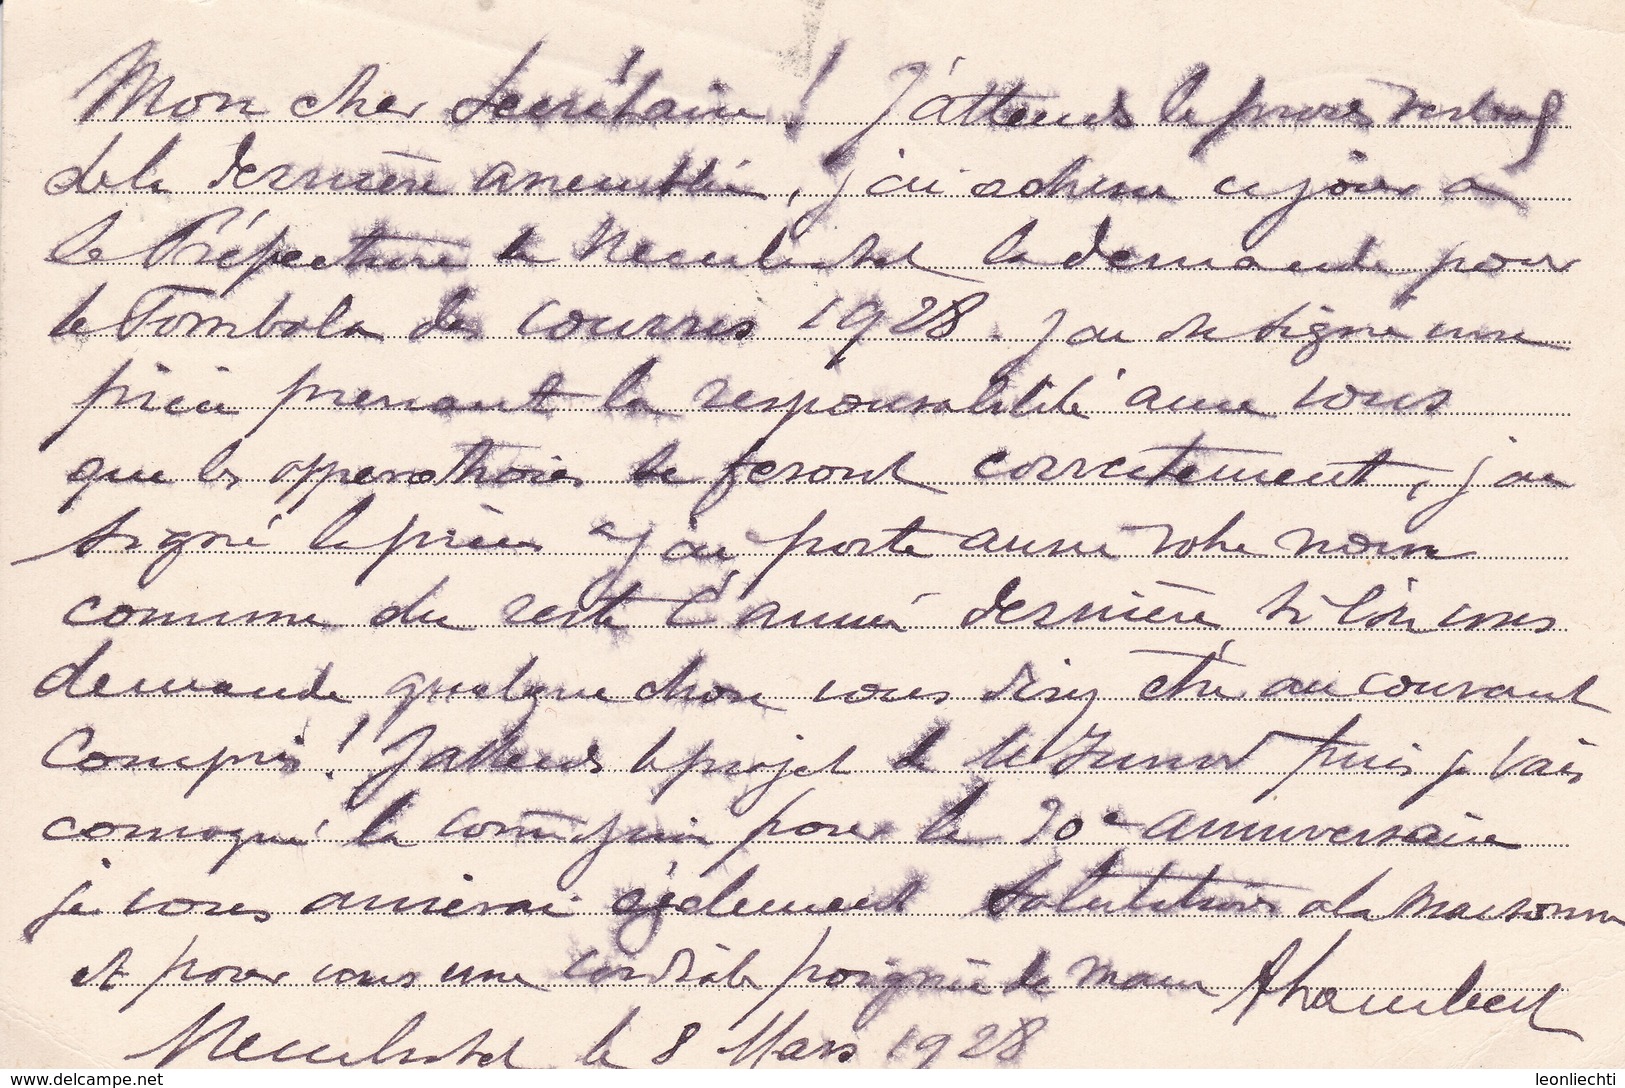 Mon cher Secrétaire! J'attends le procès verbal
de la dernière assemblée, j'ai ce jour a
la Préfecture de Neuchatel la demande pour
la Tombola des courses 1928. J'ai signé une
pièce prenant la responsabilité avec vous
que les opperathoires se feront correctement, j'ai
signé la pièce et j'ai porté aussi votre nom
comme du reste l'année dernière si l'on vous
demande quelque chose vous direz être au courant
Compris! J'attends le projet de Mr puis je vais
comoqué la comm pour le 30e anniversaire
je vous aviserai également Salutations a la maisonne
et pour vous une cordiale poignée de main
Neuchatel le 8 Mars 1928
leonliechti